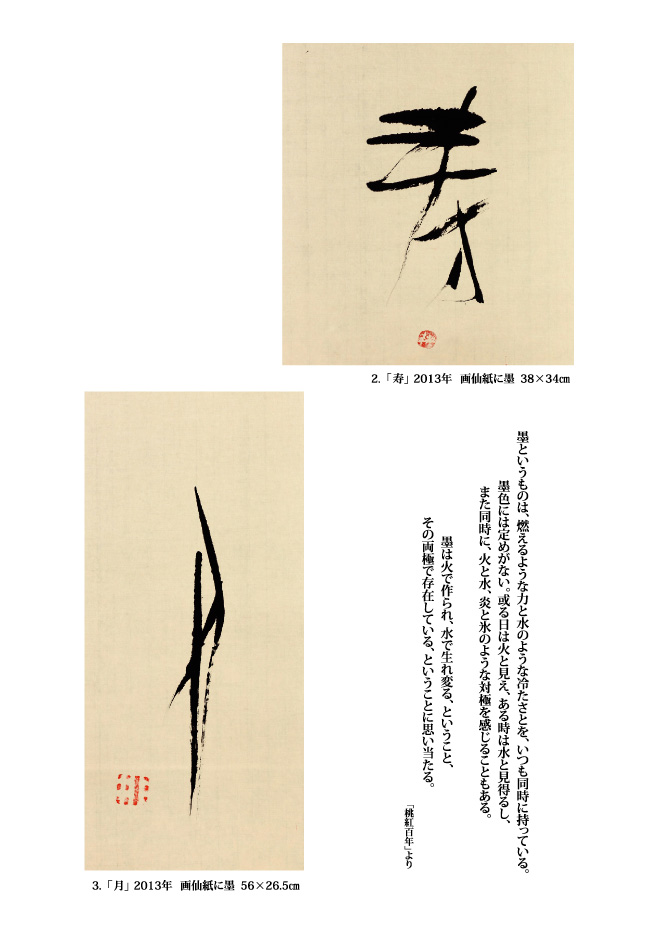 寿
2.「寿」2013年 画仙紙に墨 38×34㎝
墨というものは、燃えるような力と水のような冷たさとを、いつも同時に持っている。
墨色には定めがない。或る日は火と見え、ある時は水と見得るし、
また同時に、火と水、炎と氷のような対極を感じることもある。
墨は火で作られ、水で生れ変る、ということ、
その両極で存在している、ということに思い当たる。
「桃紅百年」より
月
3.「月」2013年 画仙紙に墨 56×26.5㎝